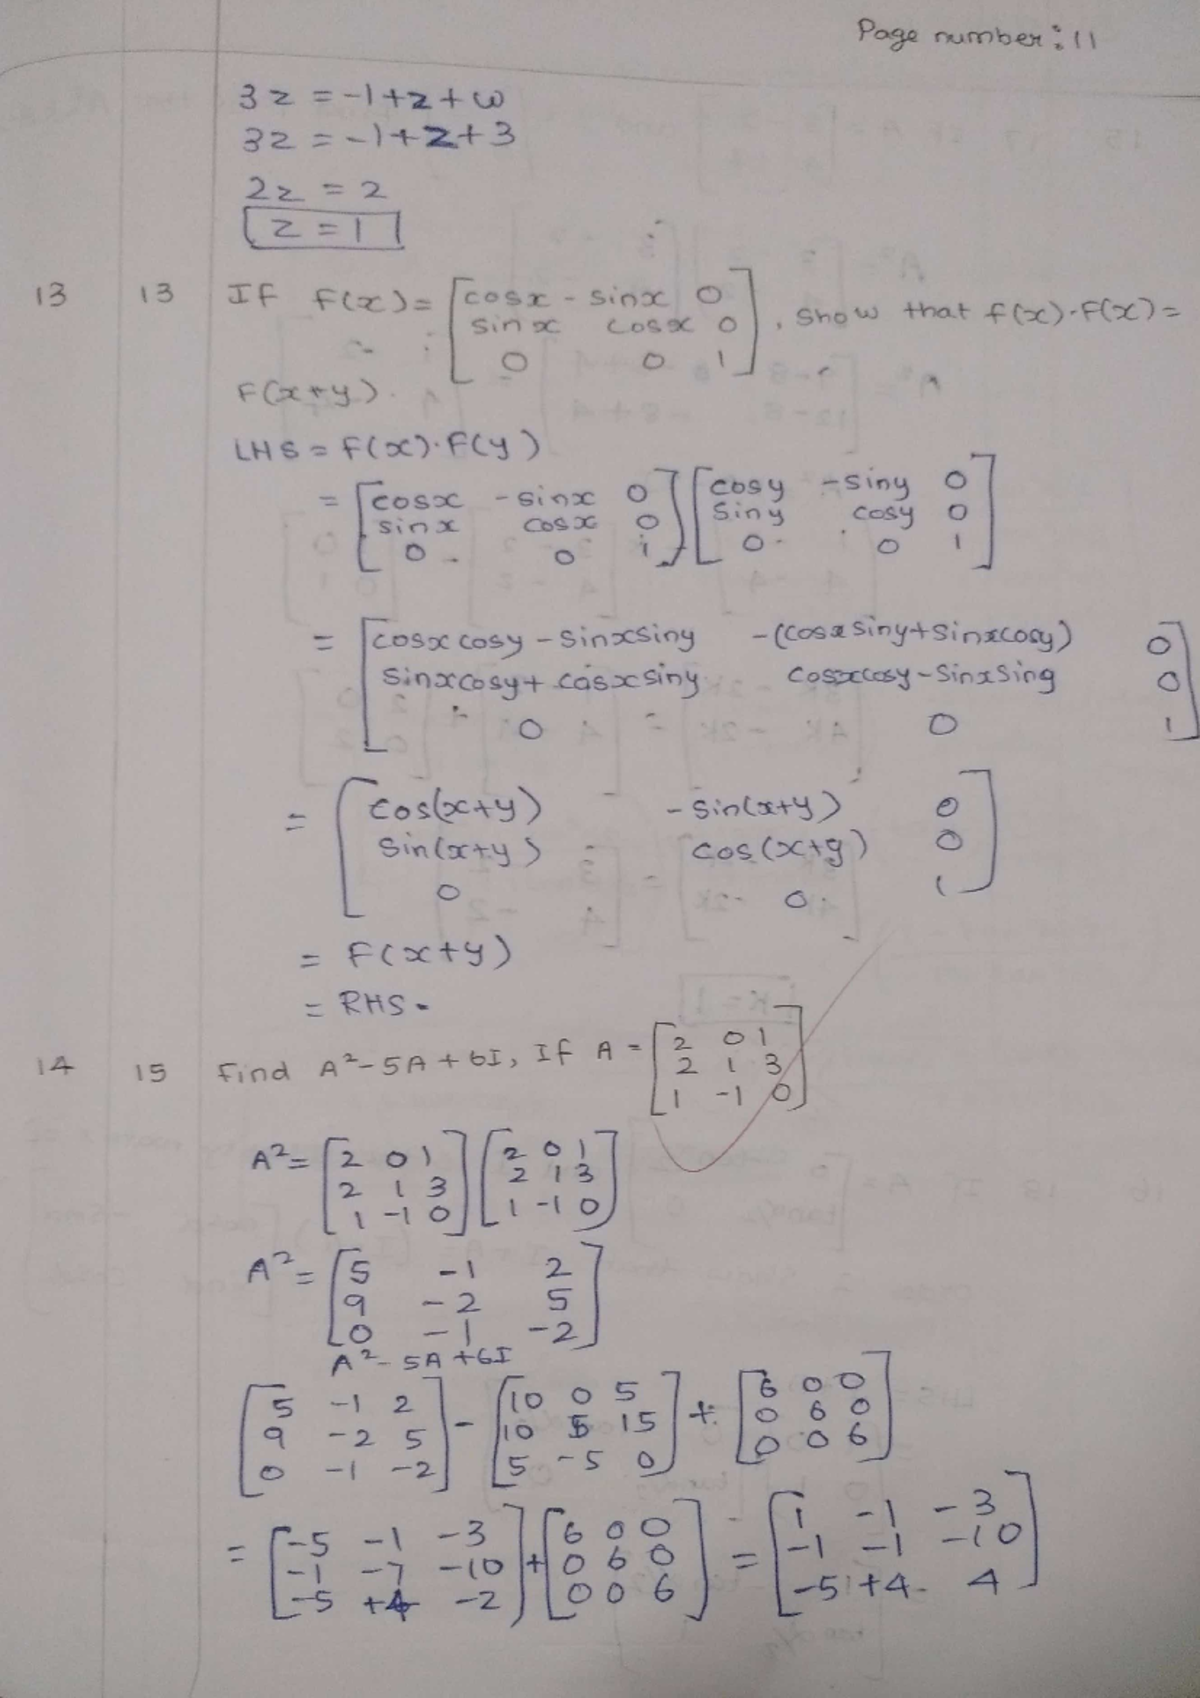 Page number: 11
3z = -1+z+ω
3z = -1+z+3
2z = 2
z = 1
13 13 If F(x) = [cosx - sinx 0
sinx cosx 0
0 0 1], show that f(x)·F(x) =
F(x+y).
LHS = F(x)·F(y)
= [cosx -sinx 0 ] [cosy -siny 0
sinx cosx 0 siny cosy 0
0 0 1] [0 0 1]
= [cosx cosy - sinxsiny -(cosx siny+sinxcosy) 0
sinxcosy+ cosxsiny cosxcosy-sinxsiny 0
0 0 1]
= [cos(x+y) -sin(x+y) 0
sin(x+y) cos(x+y) 0
0 0 1]
= F(x+y)
= RHS.
14 15 Find A²-5A+6I, If A = [2 0 1
2 1 3
1 -1 0]
A² = [2 0 1] [2 0 1
2 1 3 2 1 3
1 -1 0] [1 -1 0]
A² = [5 -1 2
9 -2 5
0 -1 -2]
A²-5A+6I
[5 -1 2] - [10 0 5] + [6 0 0
9 -2 5 10 5 15 0 6 0
0 -1 -2] [5 -5 0] [0 0 6]
= [-5 -1 -3] + [6 0 0] = [1 -1 -3
-1 -7 -10 0 6 0 -1 -1 -10
-5 +4 -2] [0 0 6] [-5 +4 4]